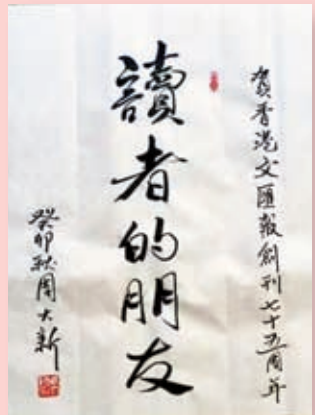 賀香港文匯報創刊七十五周年
讀者的朋友
癸卯秋周大新